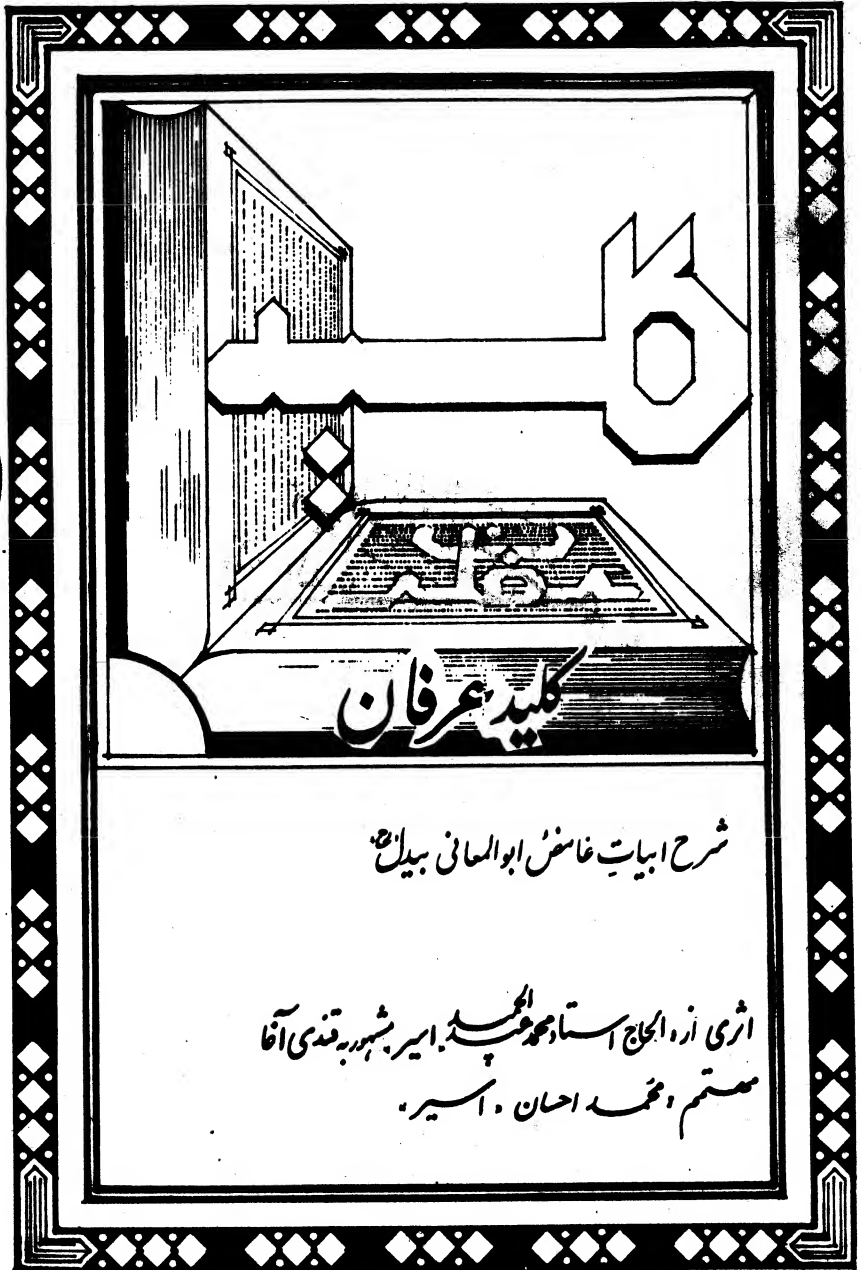 کلید عرفان
شرح ابیاتِ غامض ابوالمعانی بیدل رح
اثری از: الحاج استاد محمد عبدالحمید اسیر مشهور به قندی آغا
مهتمم: محمد احسان «اسیر»